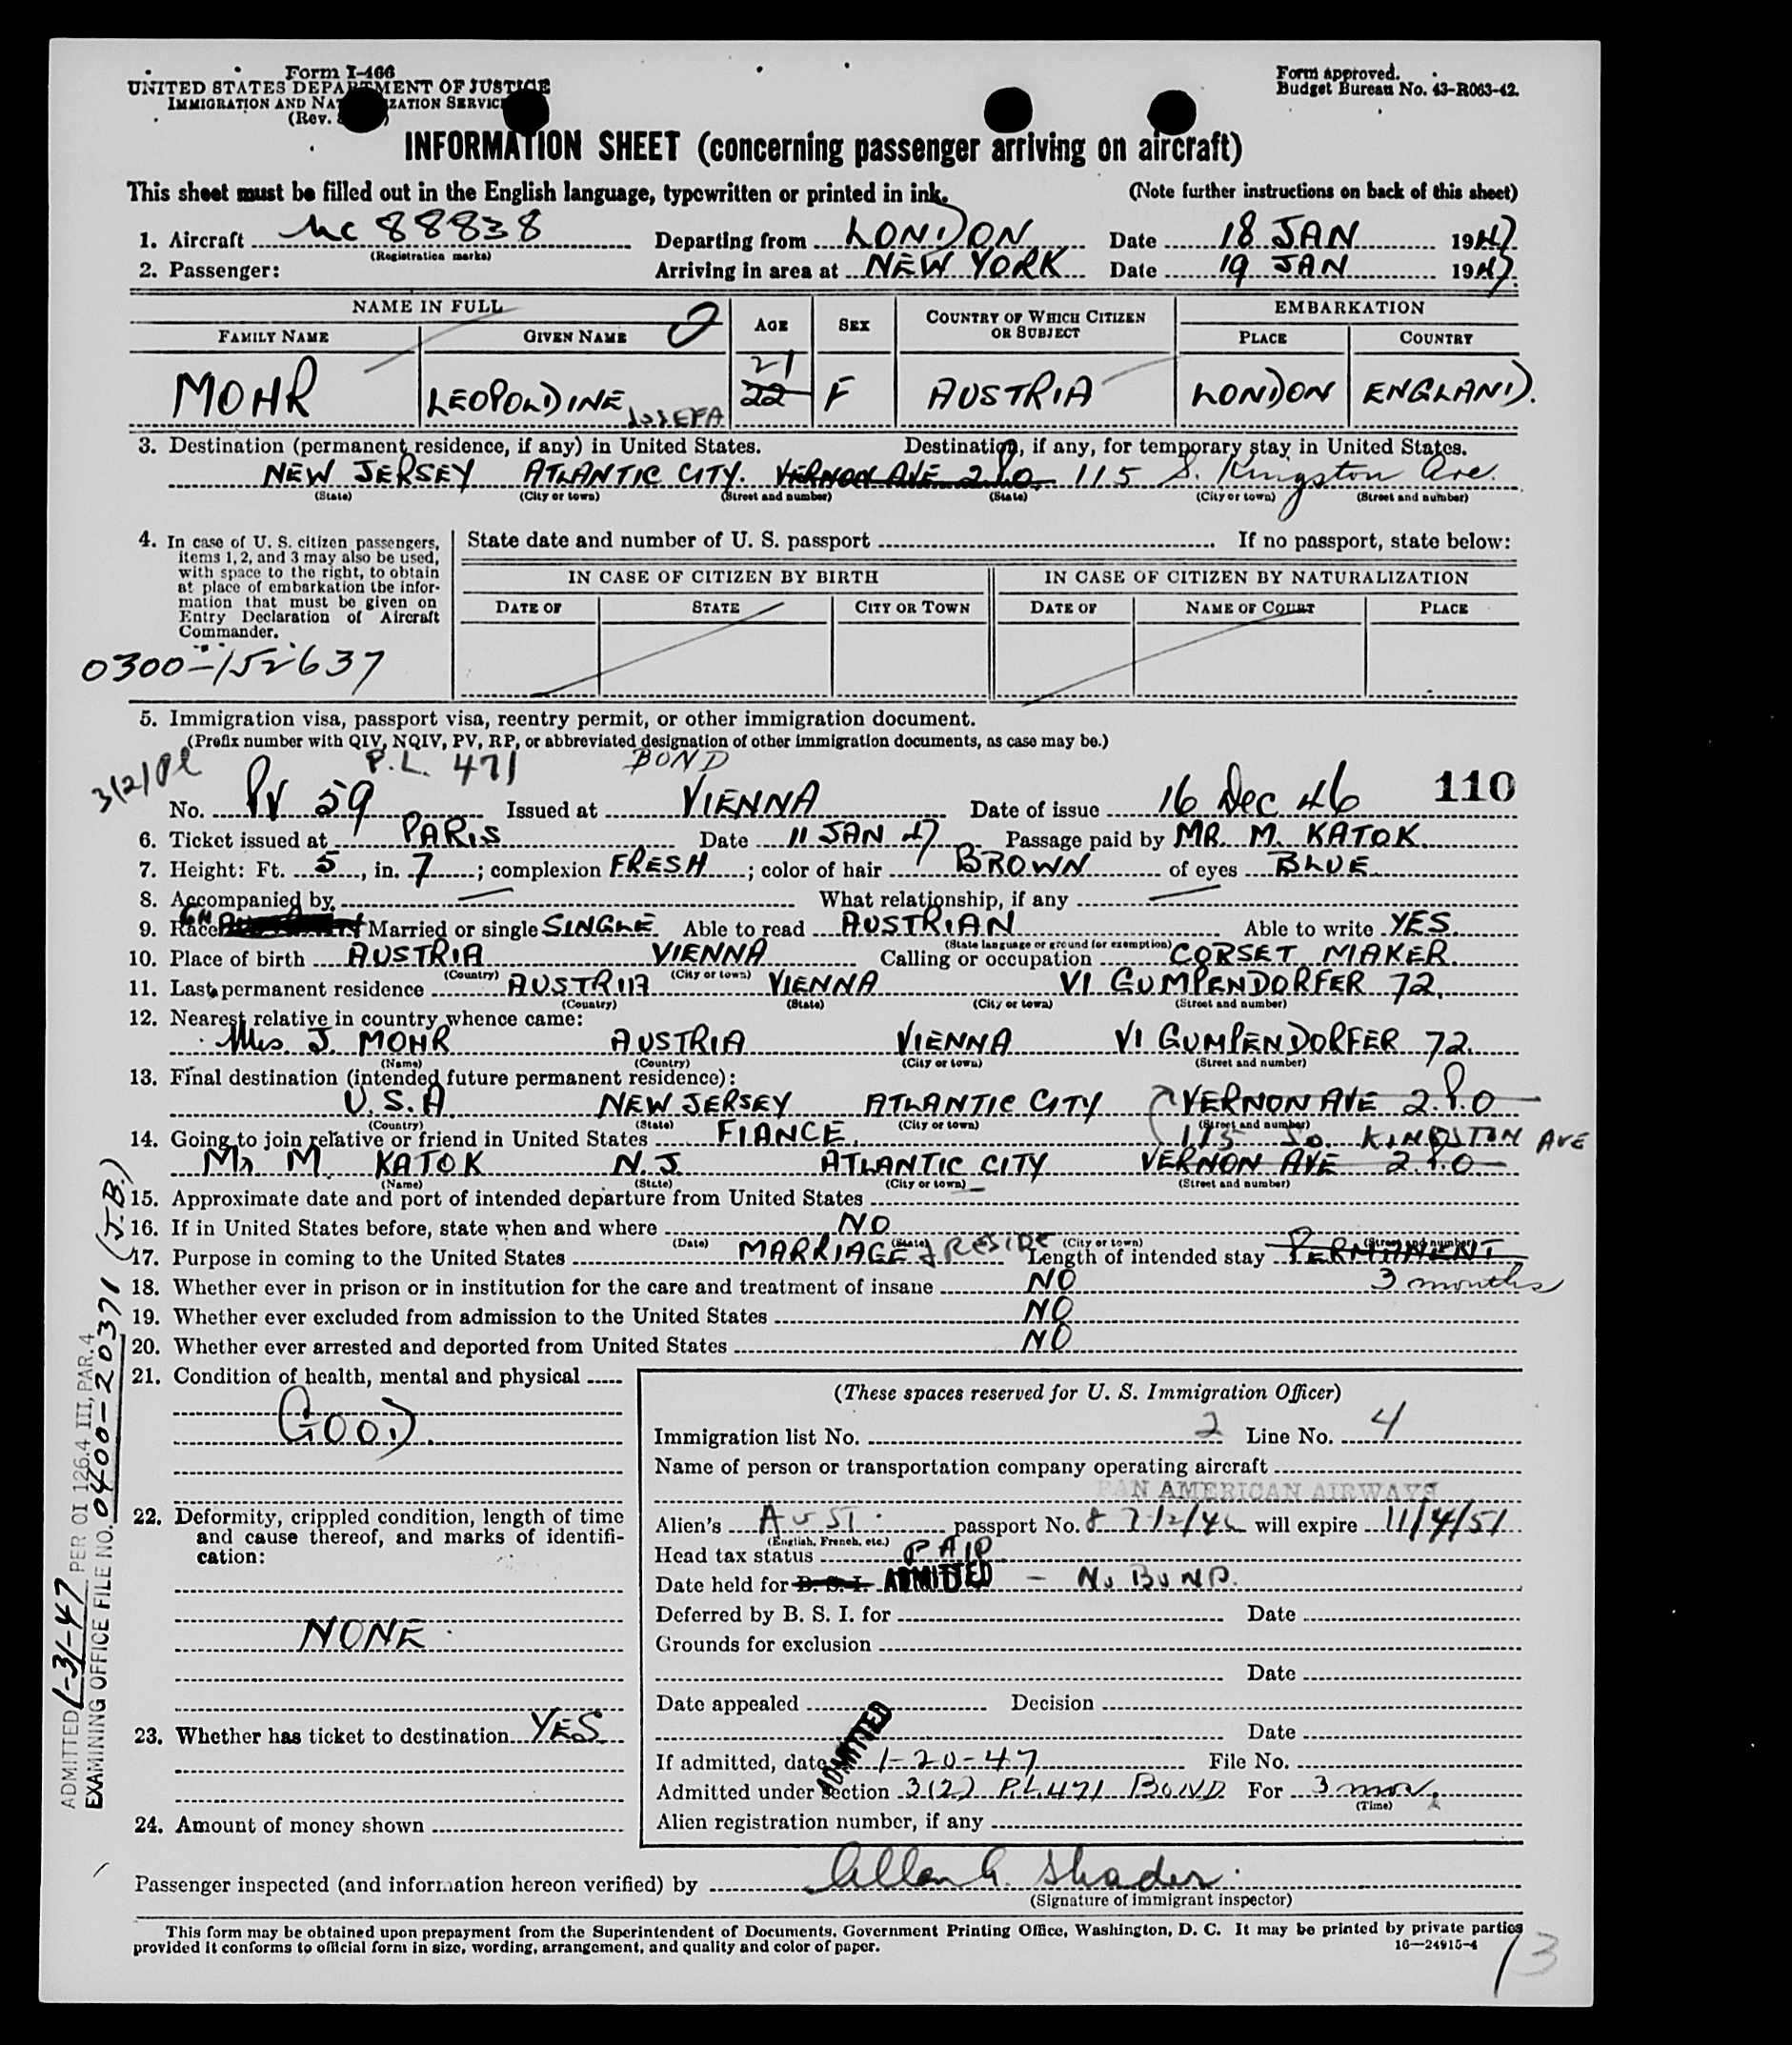 Form I-466
UNITED STATES DEPARTMENT OF JUSTICE
IMMIGRATION AND NATURALIZATION SERVICE
(Rev.
Form approved.
Budget Bureau No. 43-R063-42.
INFORMATION SHEET (concerning passenger arriving on aircraft)
This sheet must be filled out in the English language, typewritten or printed in ink. (Note further instructions on back of this sheet)
1. Aircraft NC 88838 Departing from LONDON Date 18 JAN 1947
(Registration marks)
2. Passenger: Arriving in area at NEW YORK Date 19 JAN 1947.
NAME IN FULL AGE SEX COUNTRY OF WHICH CITIZEN OR SUBJECT EMBARKATION
FAMILY NAME GIVEN NAME PLACE COUNTRY
21
MOHR LEOPOLDINE JOSEFA 22 F AUSTRIA LONDON ENGLAND.
3. Destination (permanent residence, if any) in United States. Destination, if any, for temporary stay in United States.
NEW JERSEY ATLANTIC CITY. VERNON AVE 2.P.O. 115 S. Kingston Ave.
(State) (City or town) (Street and number) (State) (City or town) (Street and number)
4. In case of U. S. citizen passengers, items 1, 2, and 3 may also be used, with space to the right, to obtain at place of embarkation the information that must be given on Entry Declaration of Aircraft Commander.
State date and number of U. S. passport If no passport, state below:
IN CASE OF CITIZEN BY BIRTH IN CASE OF CITIZEN BY NATURALIZATION
DATE OF STATE CITY OR TOWN DATE OF NAME OF COURT PLACE
0300-152637
5. Immigration visa, passport visa, reentry permit, or other immigration document.
(Prefix number with QIV, NQIV, PV, RP, or abbreviated designation of other immigration documents, as case may be.)
3(2) PL P.L. 471 BOND
110
No. PV 59 Issued at VIENNA Date of issue 16 Dec 46
6. Ticket issued at PARIS Date 11 JAN 47 Passage paid by MR. M. KATOK
7. Height: Ft. 5, in. 7; complexion FRESH; color of hair BROWN of eyes BLUE
8. Accompanied by What relationship, if any
9. Race Married or single SINGLE Able to read AUSTRIAN Able to write YES
(State language or ground for exemption)
10. Place of birth AUSTRIA VIENNA Calling or occupation CORSET MAKER
(Country) (City or town)
11. Last permanent residence AUSTRIA VIENNA VI GUMPENDORFER 72.
(Country) (State) (City or town) (Street and number)
12. Nearest relative in country whence came:
Mrs. J. MOHR AUSTRIA VIENNA VI GUMPENDORFER 72
(Name) (Country) (City or town) (Street and number)
13. Final destination (intended future permanent residence):
U.S.A. NEW JERSEY ATLANTIC CITY VERNON AVE 2.P.O
(Country) (State) (City or town) (Street and number)
14. Going to join relative or friend in United States FIANCE. 115 SO. KINGSTON AVE
Mr M. KATOK N.J. ATLANTIC CITY VERNON AVE 2.P.O
(Name) (State) (City or town) (Street and number)
15. Approximate date and port of intended departure from United States
16. If in United States before, state when and where NO
(Date) (State) (City or town) (Street and number)
17. Purpose in coming to the United States MARRIAGE & RESIDE Length of intended stay PERMANENT
3 months
18. Whether ever in prison or in institution for the care and treatment of insane NO
19. Whether ever excluded from admission to the United States NO
20. Whether ever arrested and deported from United States NO
21. Condition of health, mental and physical
GOOD.
22. Deformity, crippled condition, length of time and cause thereof, and marks of identification:
NONE
23. Whether has ticket to destination YES
24. Amount of money shown
(These spaces reserved for U. S. Immigration Officer)
Immigration list No. 2 Line No. 4
Name of person or transportation company operating aircraft
PAN AMERICAN AIRWAYS
Alien's AUST. passport No. will expire 11/4/51
(English, French, etc.)
Head tax status PAID
Date held for B. S. I. ADMITTED - NO BOND.
Deferred by B. S. I. for Date
Grounds for exclusion
Date
Date appealed Decision
Date
If admitted, date ADMITTED 1-20-47 File No.
Admitted under section 3(2) P.L. 471 BOND For 3 mos.
(Time)
Alien registration number, if any
Passenger inspected (and information hereon verified) by Allen G. Shader
(Signature of immigrant inspector)
This form may be obtained upon prepayment from the Superintendent of Documents, Government Printing Office, Washington, D. C. It may be printed by private parties
provided it conforms to official form in size, wording, arrangement, and quality and color of paper. 16—24915-4
13
ADMITTED 1-31-47 PER OI 126.4 III, PAR. 4
EXAMINING OFFICE FILE NO. 0400-20371 (J.B.)